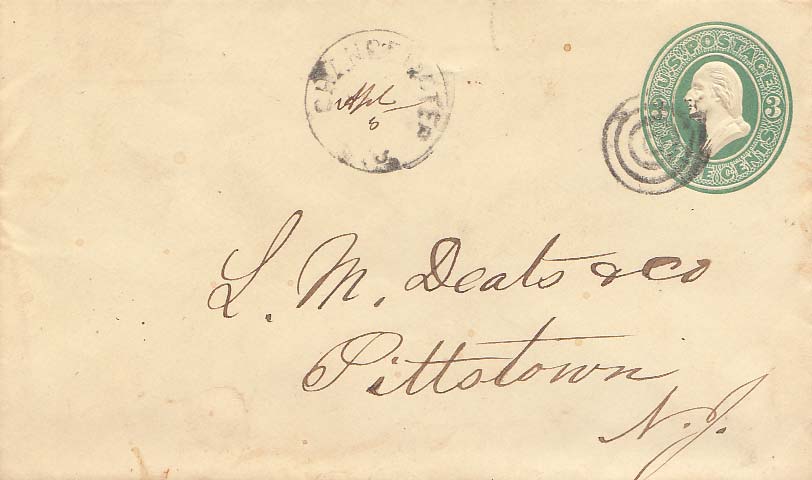 CHANGEWATER
N.J.
Apl
8
U.S. POSTAGE
3
3
THREE CENTS
L. M. Deats & Co
Pittstown
N. J.